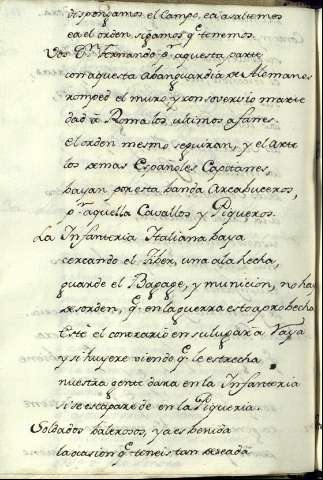 dispongamos el Campo, ea asaltemos
ea el orden sigamos q.e tenemos.
Vos D.n Fernando p.r aquesta parte
con aquesta abanguardia de Alemanes
romped el muro, y con sovervio marte
dad â Roma los ultimos afanes.
el orden mesmo seguiran, y el arte
los demas Españoles Capitanes,
bayan por esta banda Arcabuceros,
p.r aquella Cavallos y Piqueros.
La Infanteria Italiana baya
cercando el Tiber, una ala hecha,
guarde el Bagage, y municion, no haya
desorden, q.e en la guerra esto aprobecha
Esté el contrario en su lugar â Raya
y si huyere viendo q.e le estrecha
nuestra gente dara en la Infanteria
si se escapare de en la Piqueria.
Soldados balerosos, ya es benida
la ocasion q.e teneis tan deseada